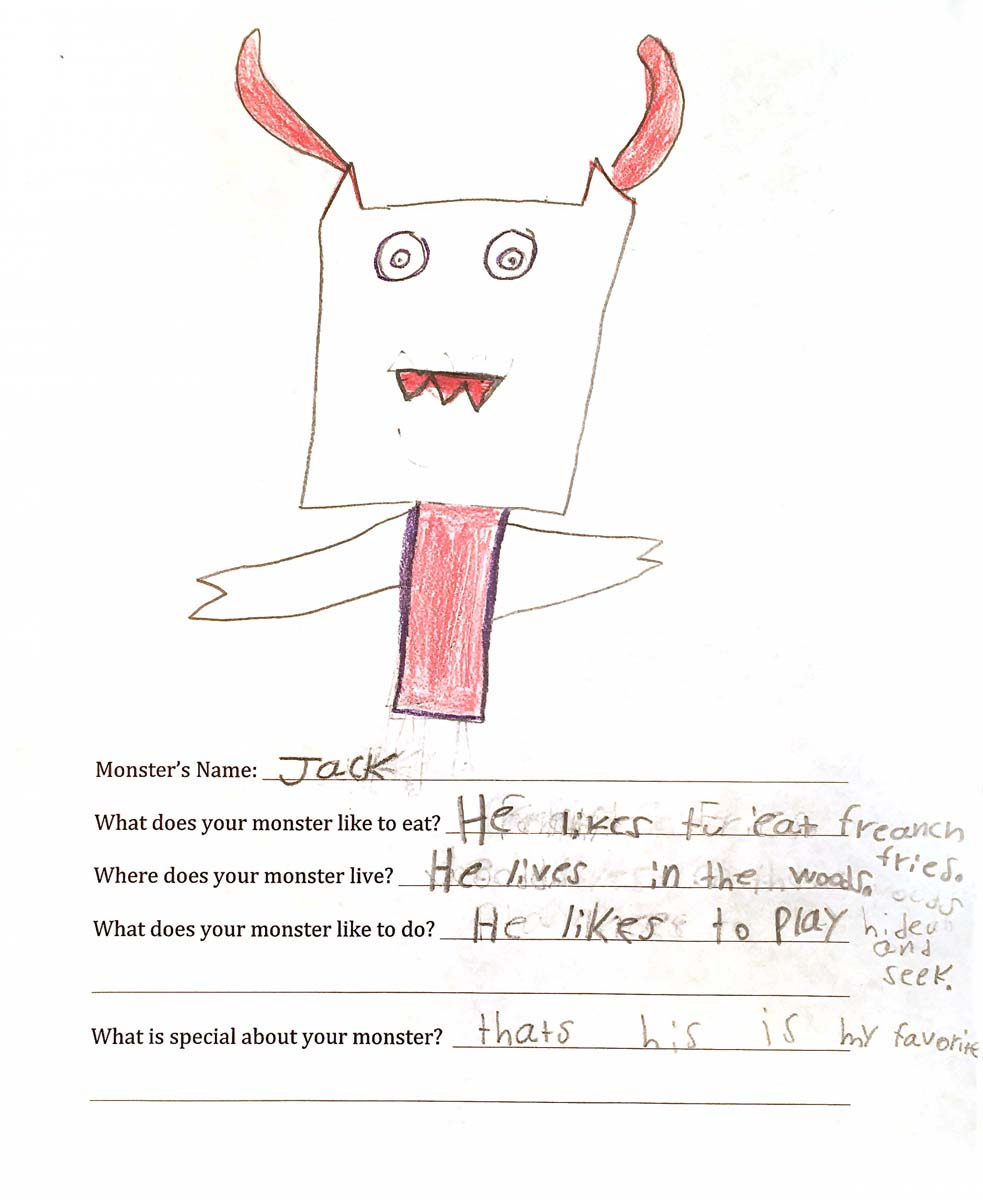 Monster's Name: Jack
What does your monster like to eat? He likes to eat freanch
fries.
Where does your monster live? He lives in the woods.
What does your monster like to do? He likes to play hideu
and
seek.
What is special about your monster? thats his is my favorite